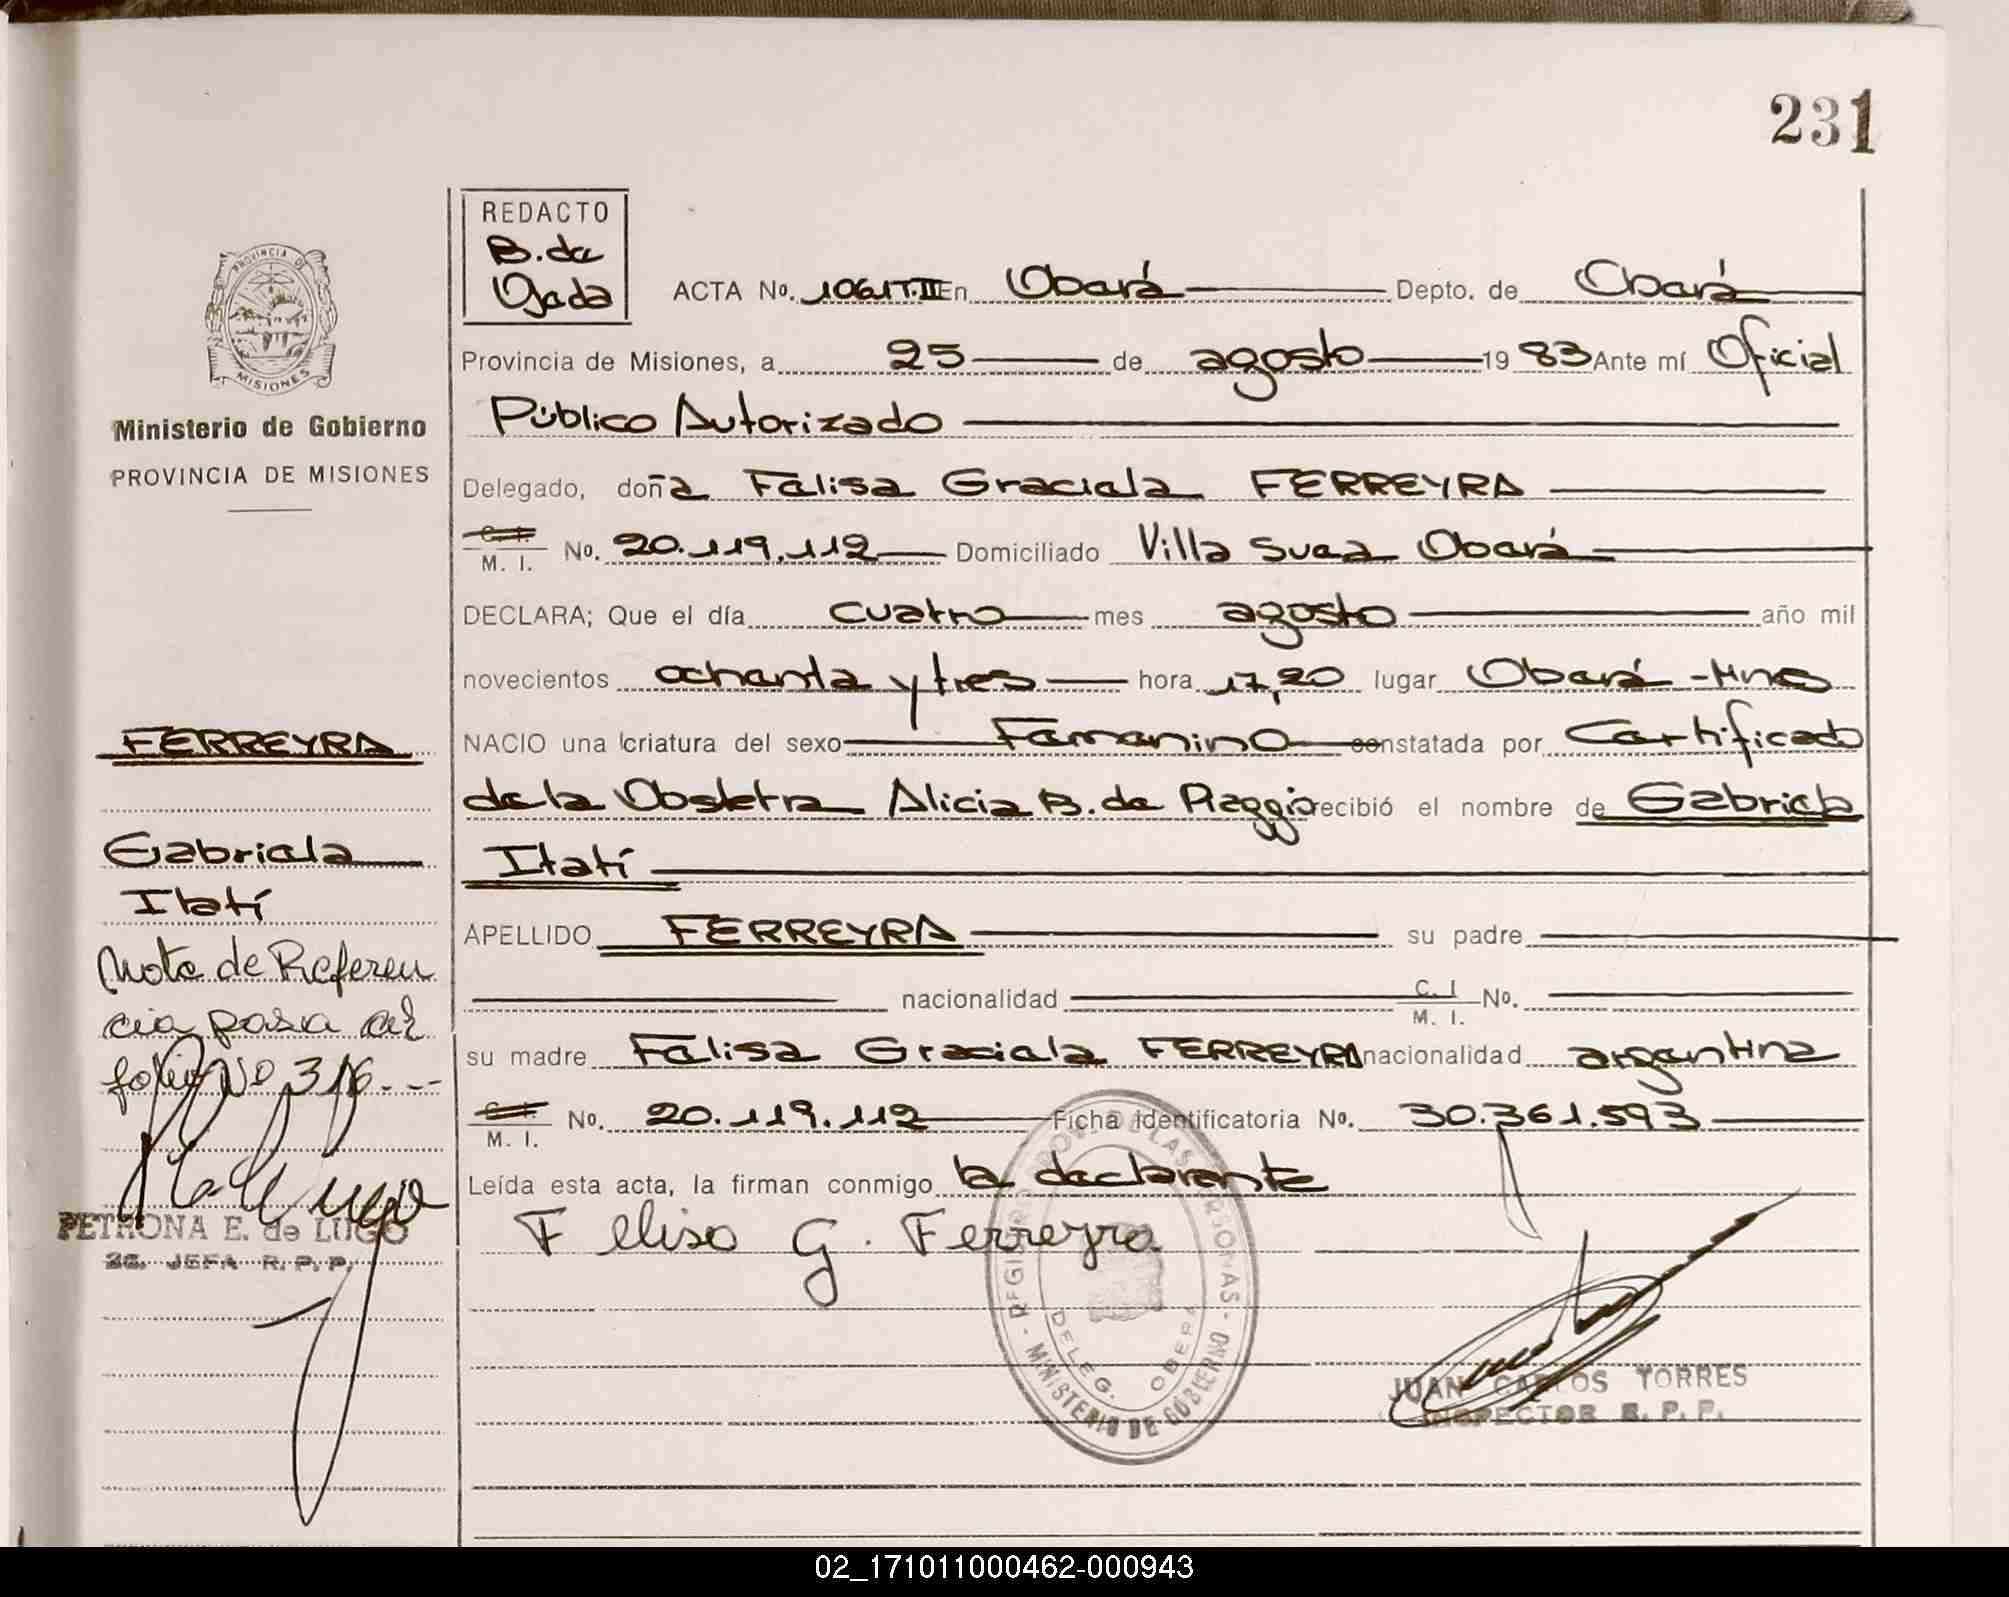 231
REDACTO
B. de
Ojeda
ACTA No. 1061T.III En Oberá Depto. de Oberá
Provincia de Misiones, a 25 de agosto 1983 Ante mí Oficial
Público Autorizado
PROVINCIA DE MISIONES
Ministerio de Gobierno
PROVINCIA DE MISIONES
Delegado, doña Felisa Graciela FERREYRA
C. I.
M. I. No. 20.119.112 Domiciliado Villa Svea Oberá
DECLARA; Que el día cuatro mes agosto año mil
novecientos ochenta y tres hora 17,20 lugar Oberá - Mnes
FERREYRA
NACIO una criatura del sexo Femenino constatada por Certificado
de la Obstetra Alicia B. de Piaggio recibió el nombre de Gabriela
Gabriela
Itatí
Itatí
APELLIDO FERREYRA su padre
Nota de Referen
nacionalidad C. I. M. I. No.
cia para al
su madre Felisa Graciela FERREYRA nacionalidad argentina
folio No 316.---
C. I.
M. I. No. 20.119.112 Ficha identificatoria No. 30.361.593
Leída esta acta, la firman conmigo la declarante
PETRONA E. de LUGO
JEFA R. P. P.
Felisa G. Ferreyra
REGISTRO PROV. DE LAS PERSONAS - MINISTERIO DE GOBIERNO -
DELEG. OBERA
JUAN CARLOS TORRES
INSPECTOR R. P. P.
02_171011000462-000943